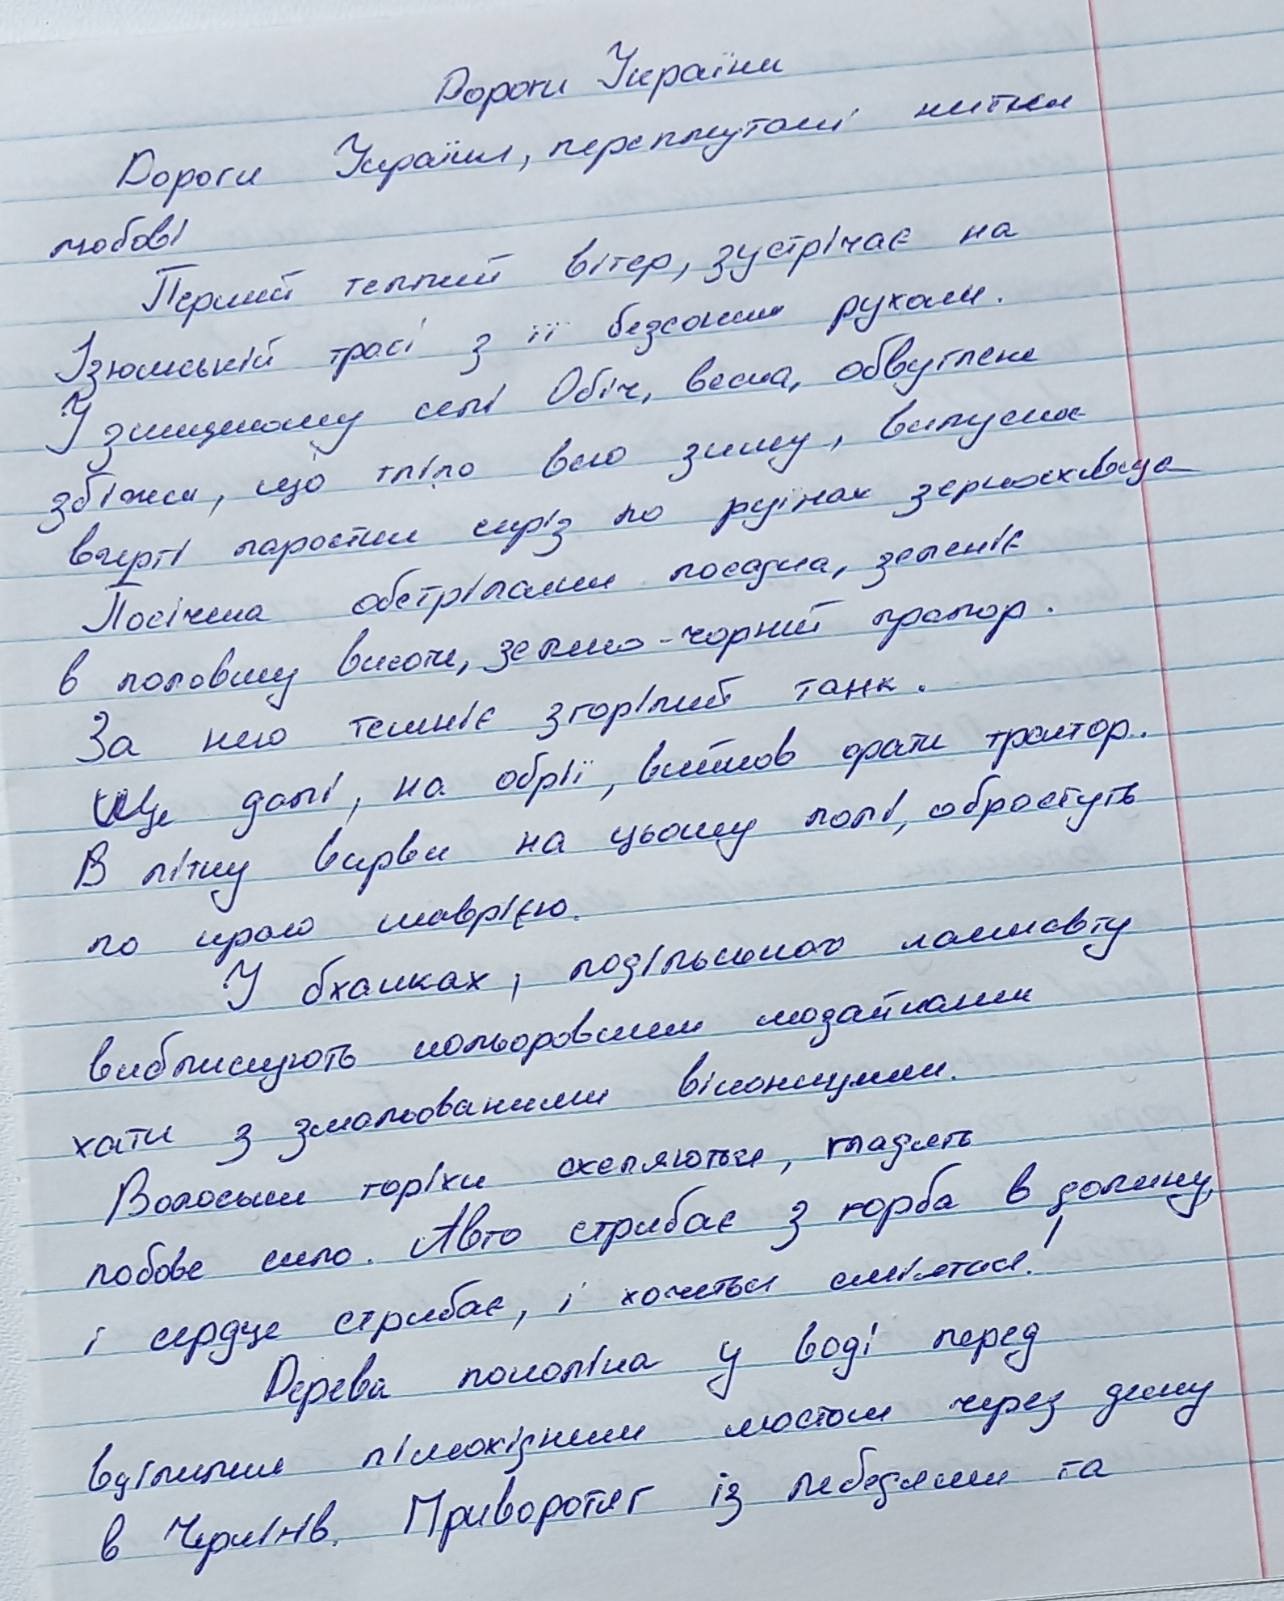 Дороги України
Дороги України, переплутані нитки
любові
Перший теплий вітер, зустрічає на
Ізюмській трасі з її безсонним рухом.
У знищеному селі Обіч, весна, обвуглене
збіжжя, що тліло всю зиму, випускає
вперті паростки крізь по руїнах зерносховища
Посічена обстрілами посадка, зеленіє
в половину висоти, зелено-чорний прапор.
За нею темніє згорілий танк.
Ще далі, на обрії, вийшов орати трактор.
В літку вирви на цьому полі, обростуть
по краю шавлією.
У бханках, подільського ландшафту
виблискують кольоровими мозайками
хати з змальованими віконицями.
Волоські горіхи схиляються, гладять
лобове скло. Авто стрибає з горба в долину,
і серце стрибає, і хочеться сміятися!
Дерева поколіна у воді перед
вцілілим пішохідним мостом через десну
в Чернігів. Приворотяг із лебедями та